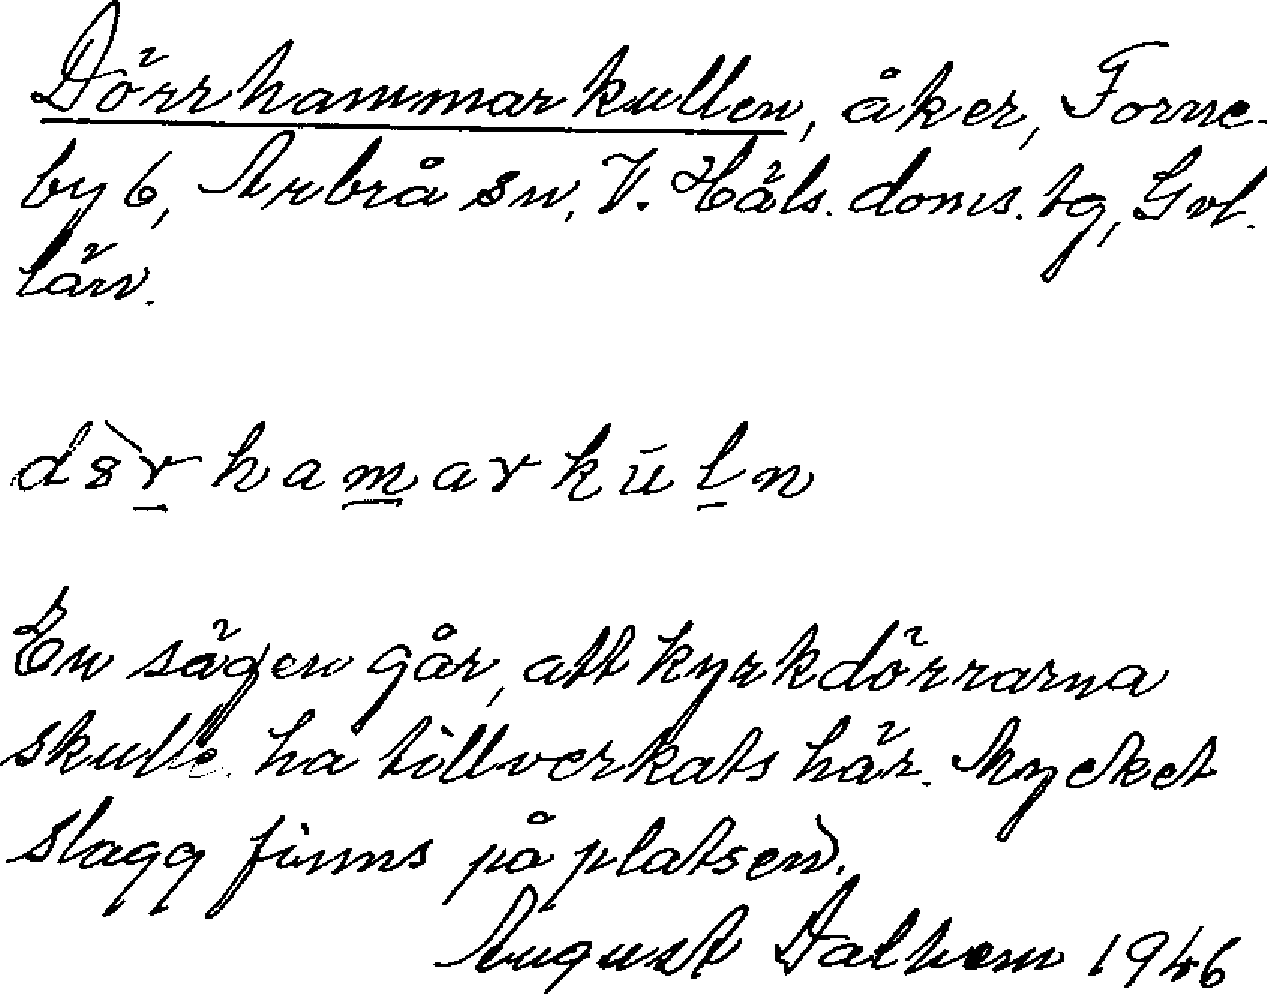 Dörrhammarkullen, åker, Forne-
by 6, Arbrå sn, V. Häls. doms. tg, Gvl.
län.
dsr̀hamarkūln
En sägen går, att kyrkdörrarna
skulle ha tillverkats här. Mycket
slagg finns på platsen.
August Dalhem 1946